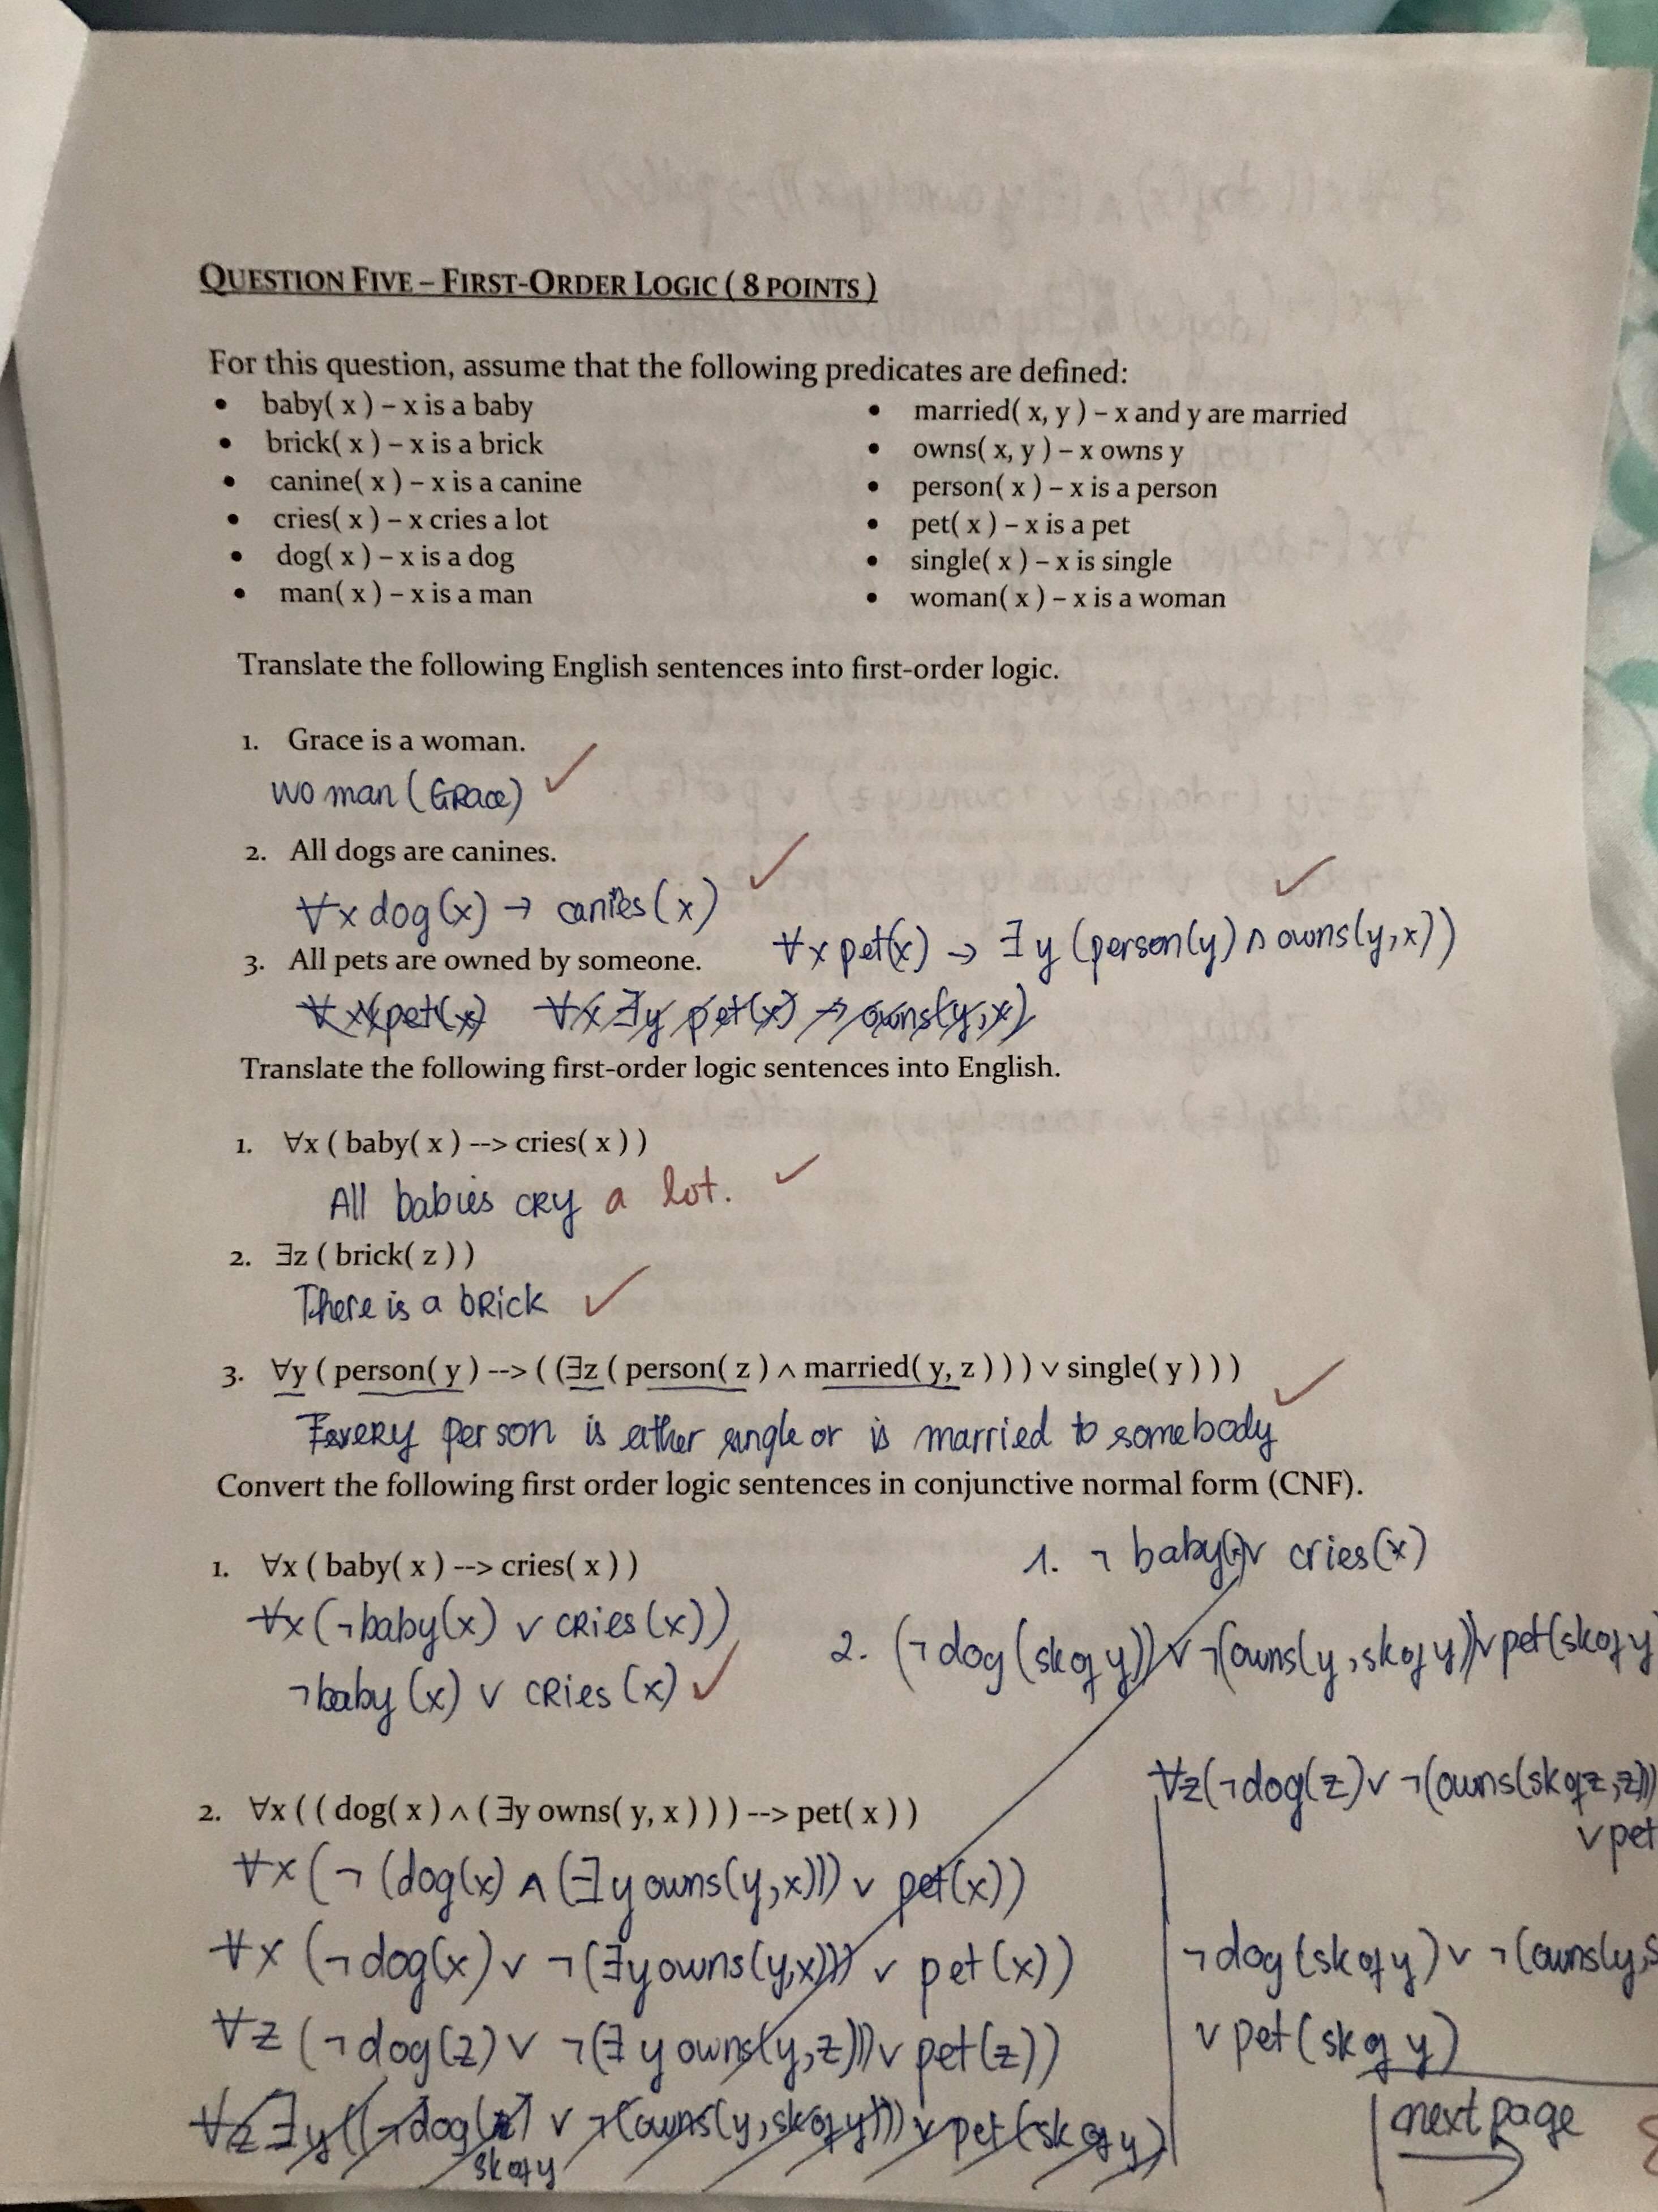 QUESTION FIVE – FIRST-ORDER LOGIC ( 8 POINTS )
For this question, assume that the following predicates are defined:
• baby( x ) – x is a baby
• brick( x ) – x is a brick
• canine( x ) – x is a canine
• cries( x ) – x cries a lot
• dog( x ) – x is a dog
• man( x ) – x is a man
• married( x, y ) – x and y are married
• owns( x, y ) – x owns y
• person( x ) – x is a person
• pet( x ) – x is a pet
• single( x ) – x is single
• woman( x ) – x is a woman
Translate the following English sentences into first-order logic.
1. Grace is a woman.
woman (GRace) ✓
2. All dogs are canines. ✓
∀x dog(x) → canies(x)
✓
∀x pet(x) → ∃y (person(y) ∧ owns(y,x))
3. All pets are owned by someone.
∀x pet(x) ∀x ∃y pet(x) → owns(y,x)
Translate the following first-order logic sentences into English.
1. ∀x ( baby( x ) --> cries( x ) )
All babies cRy a lot. ✓
2. ∃z ( brick( z ) )
There is a bRick ✓
3. ∀y ( person( y ) --> ( (∃z ( person( z ) ∧ married( y, z ) ) ) ∨ single( y ) ) )
EveRy person is either single or is married to somebody ✓
Convert the following first order logic sentences in conjunctive normal form (CNF).
1. ∀x ( baby( x ) --> cries( x ) )
∀x (¬baby(x) ∨ cRies(x))
¬baby (x) ∨ cRies (x) ✓
1. ¬ baby(x)∨ cries(x)
2. (¬dog (skofy)) ∨ ¬(owns(y, skofy))∨pet(skofy
2. ∀x ( ( dog( x ) ∧ ( ∃y owns( y, x ) ) ) --> pet( x ) )
∀x (¬ (dog(x) ∧ (∃y owns(y,x))) ∨ pet(x))
∀x (¬dog(x) ∨ ¬(∃y owns(y,x))) ∨ pet(x))
∀z (¬dog(z) ∨ ¬(∃y owns(y,z))) ∨ pet(z))
∀z ∃y ((¬dog( ) ∨ ¬(owns(y, skofy))) ∨ pet(skofy)
skofy
∀z(¬dog(z) ∨ ¬(owns(skofz,z)))
∨ pet
¬dog (skofy) ∨ ¬(owns(y,s
∨ pet(skofy)
next page
8